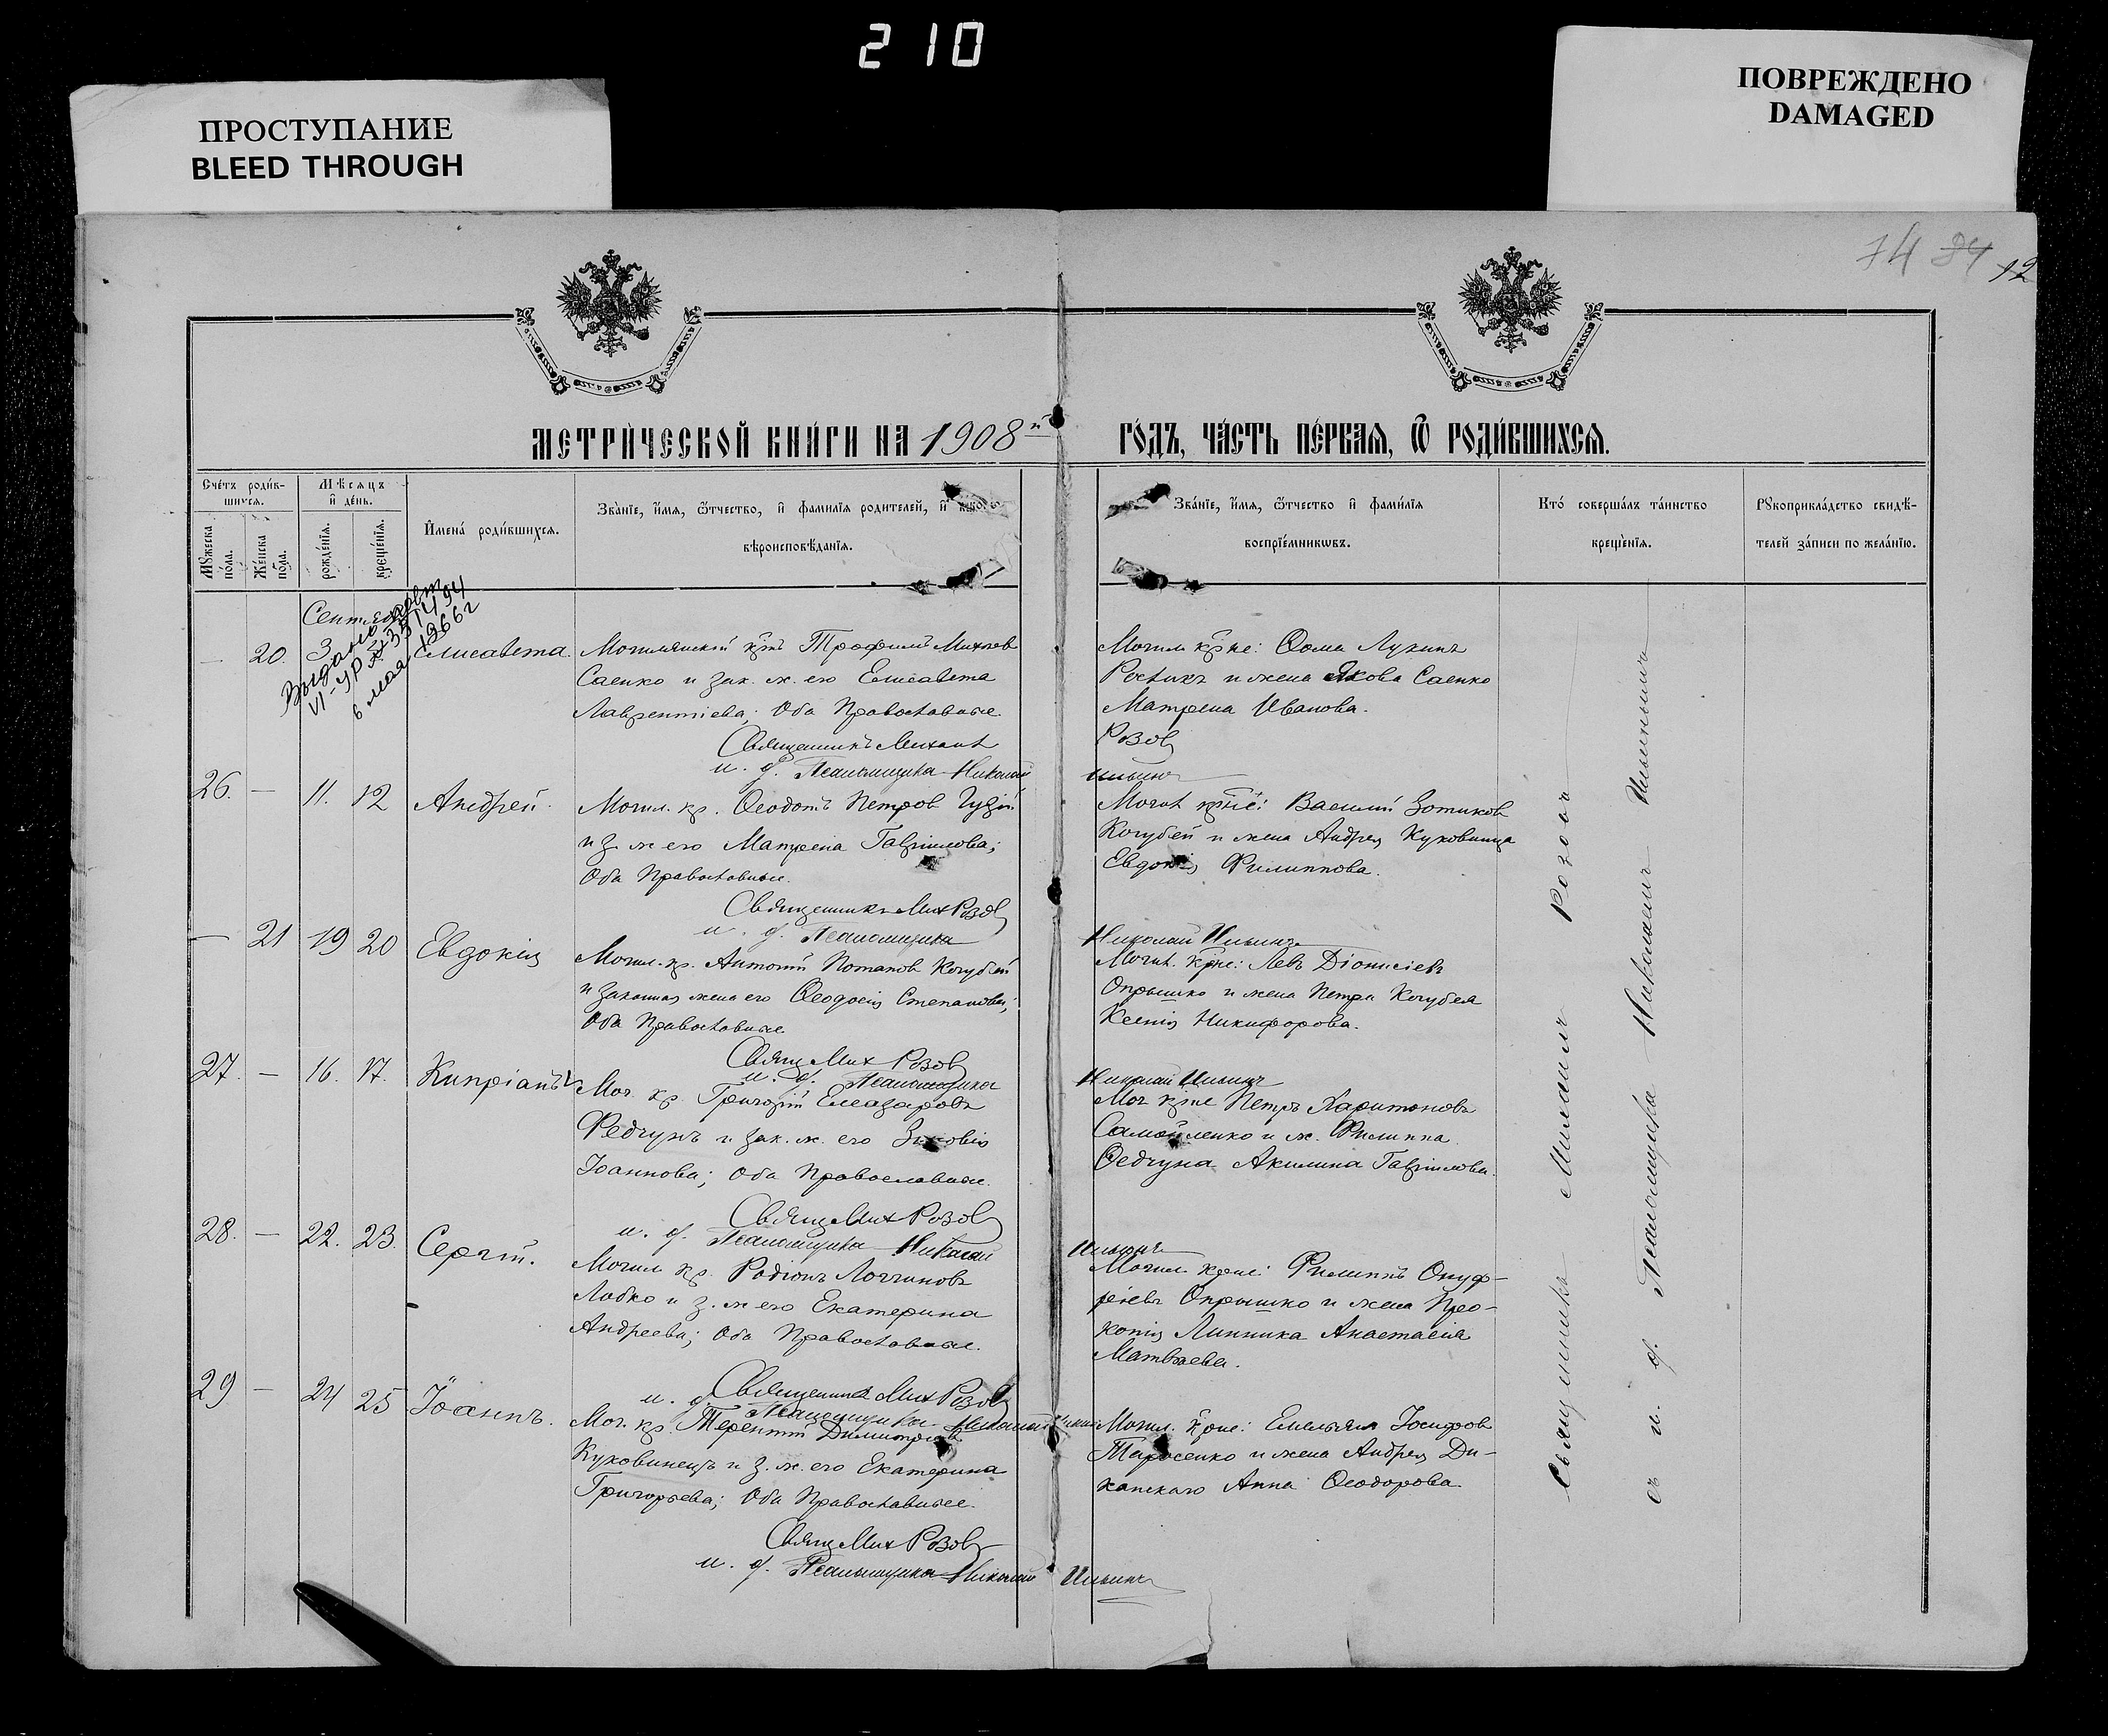 210
ПРОСТУПАНИЕ
BLEED THROUGH
ПОВРЕЖДЕНО
DAMAGED
74 84 12
МЕТРИЧЕСКОЙ КНИГИ НА 1908й ГОДЪ, ЧАСТЬ ПЕРВАЯ, Ѿ РОДИВШИХСЯ.
Счетъ родив-
шихся.
Мужеска
пола.
Женска
пола.
Мѣсяцъ
и день.
рожденія.
крещенія.
Имена родившихся.
Званіе, имя, отчество, и фамилія родителей, и
вѣроисповѣданія.
Званіе, имя, отчество и фамилія
воспріемниковъ.
Кто совершалъ таинство
крещенія.
Рукоприкладство свидѣ-
телей записи по желанію.
6 мая 1966г
— 20. 3 Елисавета.
Могилянскій крнъ Трофимъ Михаев
Саенко и зак. ж. его Елисавета
Лаврентіева; Оба Православные.
Священникъ Михаил
и. д. Псаломщика Николай
Могил крне: Ѳома Лукинъ
Костикъ и жена Якова Саенко
Матрена Иванова.
Розов
Ильинъ
26. — 11. 12 Андрей.
Могил. кр. Ѳеодотъ Петров Гудзій
и з. ж его Матрена Гавриилова;
Оба Православные.
Священникъ Мих Розов
и. д. Псаломщика
Могил крне: Василій Зотиков
Кочубей и жена Андрея Куковинца
Евдокія Филиппова.
Николай Ильинъ
— 21 19 20 Евдокія
Могил. кр. Антоній Потапов Кочубей
и законная жена его Ѳеодосія Степанова;
Оба Православные
Свящ Мих Розов
и. д. Псаломщика
Могил. крне: Левъ Діонисіевъ
Опрышко и жена Петра Кочубея
Ксенія Никифорова.
Николай Ильинъ
27. — 16. 17. Кипріанъ
Мог. кр. Григорій Елеазаровъ
Федчунъ и зак. ж. его Зиновія
Іоаннова; Оба Православные.
Свящ Мих Розов
и. д. Псаломщика Николай
Мог крне Петръ Харитоновъ
Самойленко и ж. Филиппа
Ѳедчуна Акилина Гавриилова.
Ильинъ
28. — 22. 23. Сергій.
Могил кр. Родіонъ Логгиновъ
Лобко и з. ж его Екатерина
Андреева; Оба Православные.
Священник Мих Розов
и. д. Псаломщика Николай
Могил. крне: Филиппъ Онуф-
ріевъ Опрышко и жена Про-
копія Линника Анастасія
Матвѣева.
29 — 24 25 Іоаннъ.
Мог. кр. Терентій Димитріев
Куковинецъ и з. ж. его Екатерина
Григорьева; Оба Православные.
Свящ Мих Розов
и. д. Псаломщика Николай
Могил. крне: Емельянъ Іосифов
Тарасенко и жена Андрея Ди-
канскаго Анна Ѳеодорова
Ильинъ
Священникъ Михаилъ Розовъ
съ и. д. Псаломщика Николаемъ Ильинымъ